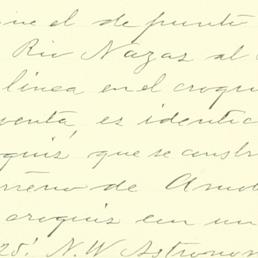 que el de punto
Rio Nazas al
linea en el croquis
venta, es identic
oquis, que se constr
rreno de Amol
croquis con un
25' N.W Astronom